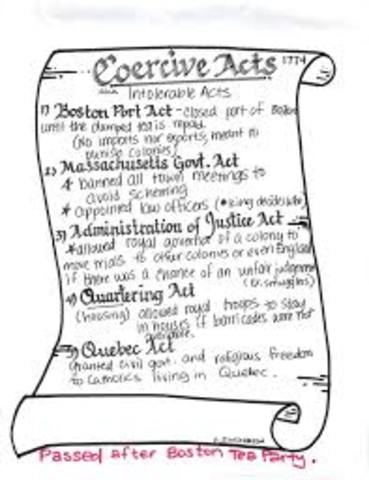 Coercive Acts 1774
aka Intolerable Acts
1) Boston Port Act - closed port of Boston
until the dumped tea is repaid
(No imports nor exports, meant to
punish colonies)
2) Massachusetts Govt. Act
* banned all town meetings to
avoid scheming
* appointed law officers (*king decides who)
3) Administration of Justice Act
*allowed royal governor of a colony to
move trials to other colonies or even England
if there was a chance of an unfair judgement
(Ex. smugglers)
4) Quartering Act
(housing) allowed royal troops to stay
in houses if barricades were not
available.
5) Quebec Act
Granted civil govt. and religious freedom
to Catholics living in Quebec.
Passed after Boston Tea Party.